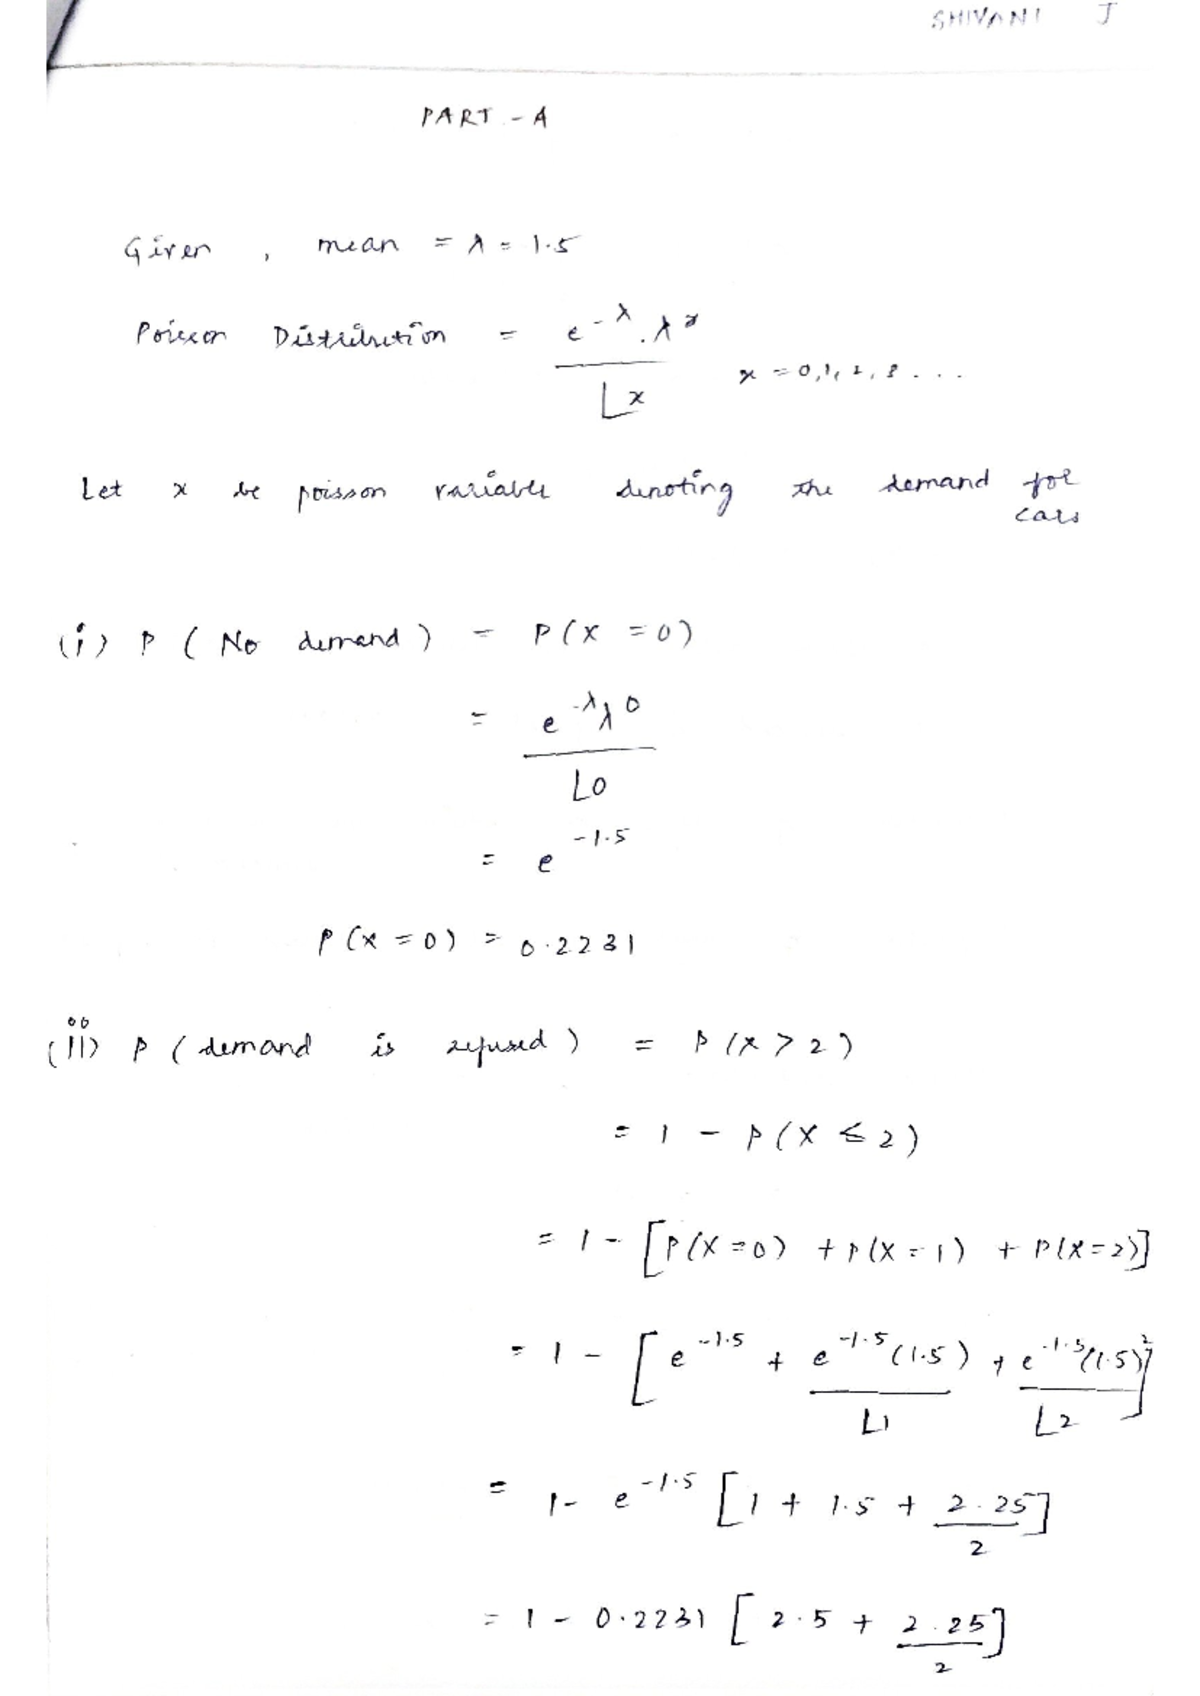 SHIVANI J
PART - A
Given , mean = λ = 1.5
Poisson Distribution = e^-λ . λ^x / ∟x x = 0, 1, 2, 3 . . .
Let x be poisson variable denoting the demand for cars
(i) P ( No demand ) = P(X = 0)
= e^-λ λ^0 / ∟0
= e^-1.5
P(x = 0) = 0.2231
(ii) P ( demand is refused ) = P(X > 2)
= 1 - P(X ≤ 2)
= 1 - [P(X = 0) + P(X = 1) + P(X = 2)]
= 1 - [e^-1.5 + e^-1.5(1.5) / ∟1 + e^-1.5(1.5)^2 / ∟2]
= 1 - e^-1.5 [1 + 1.5 + 2.25 / 2]
= 1 - 0.2231 [2.5 + 2.25 / 2]